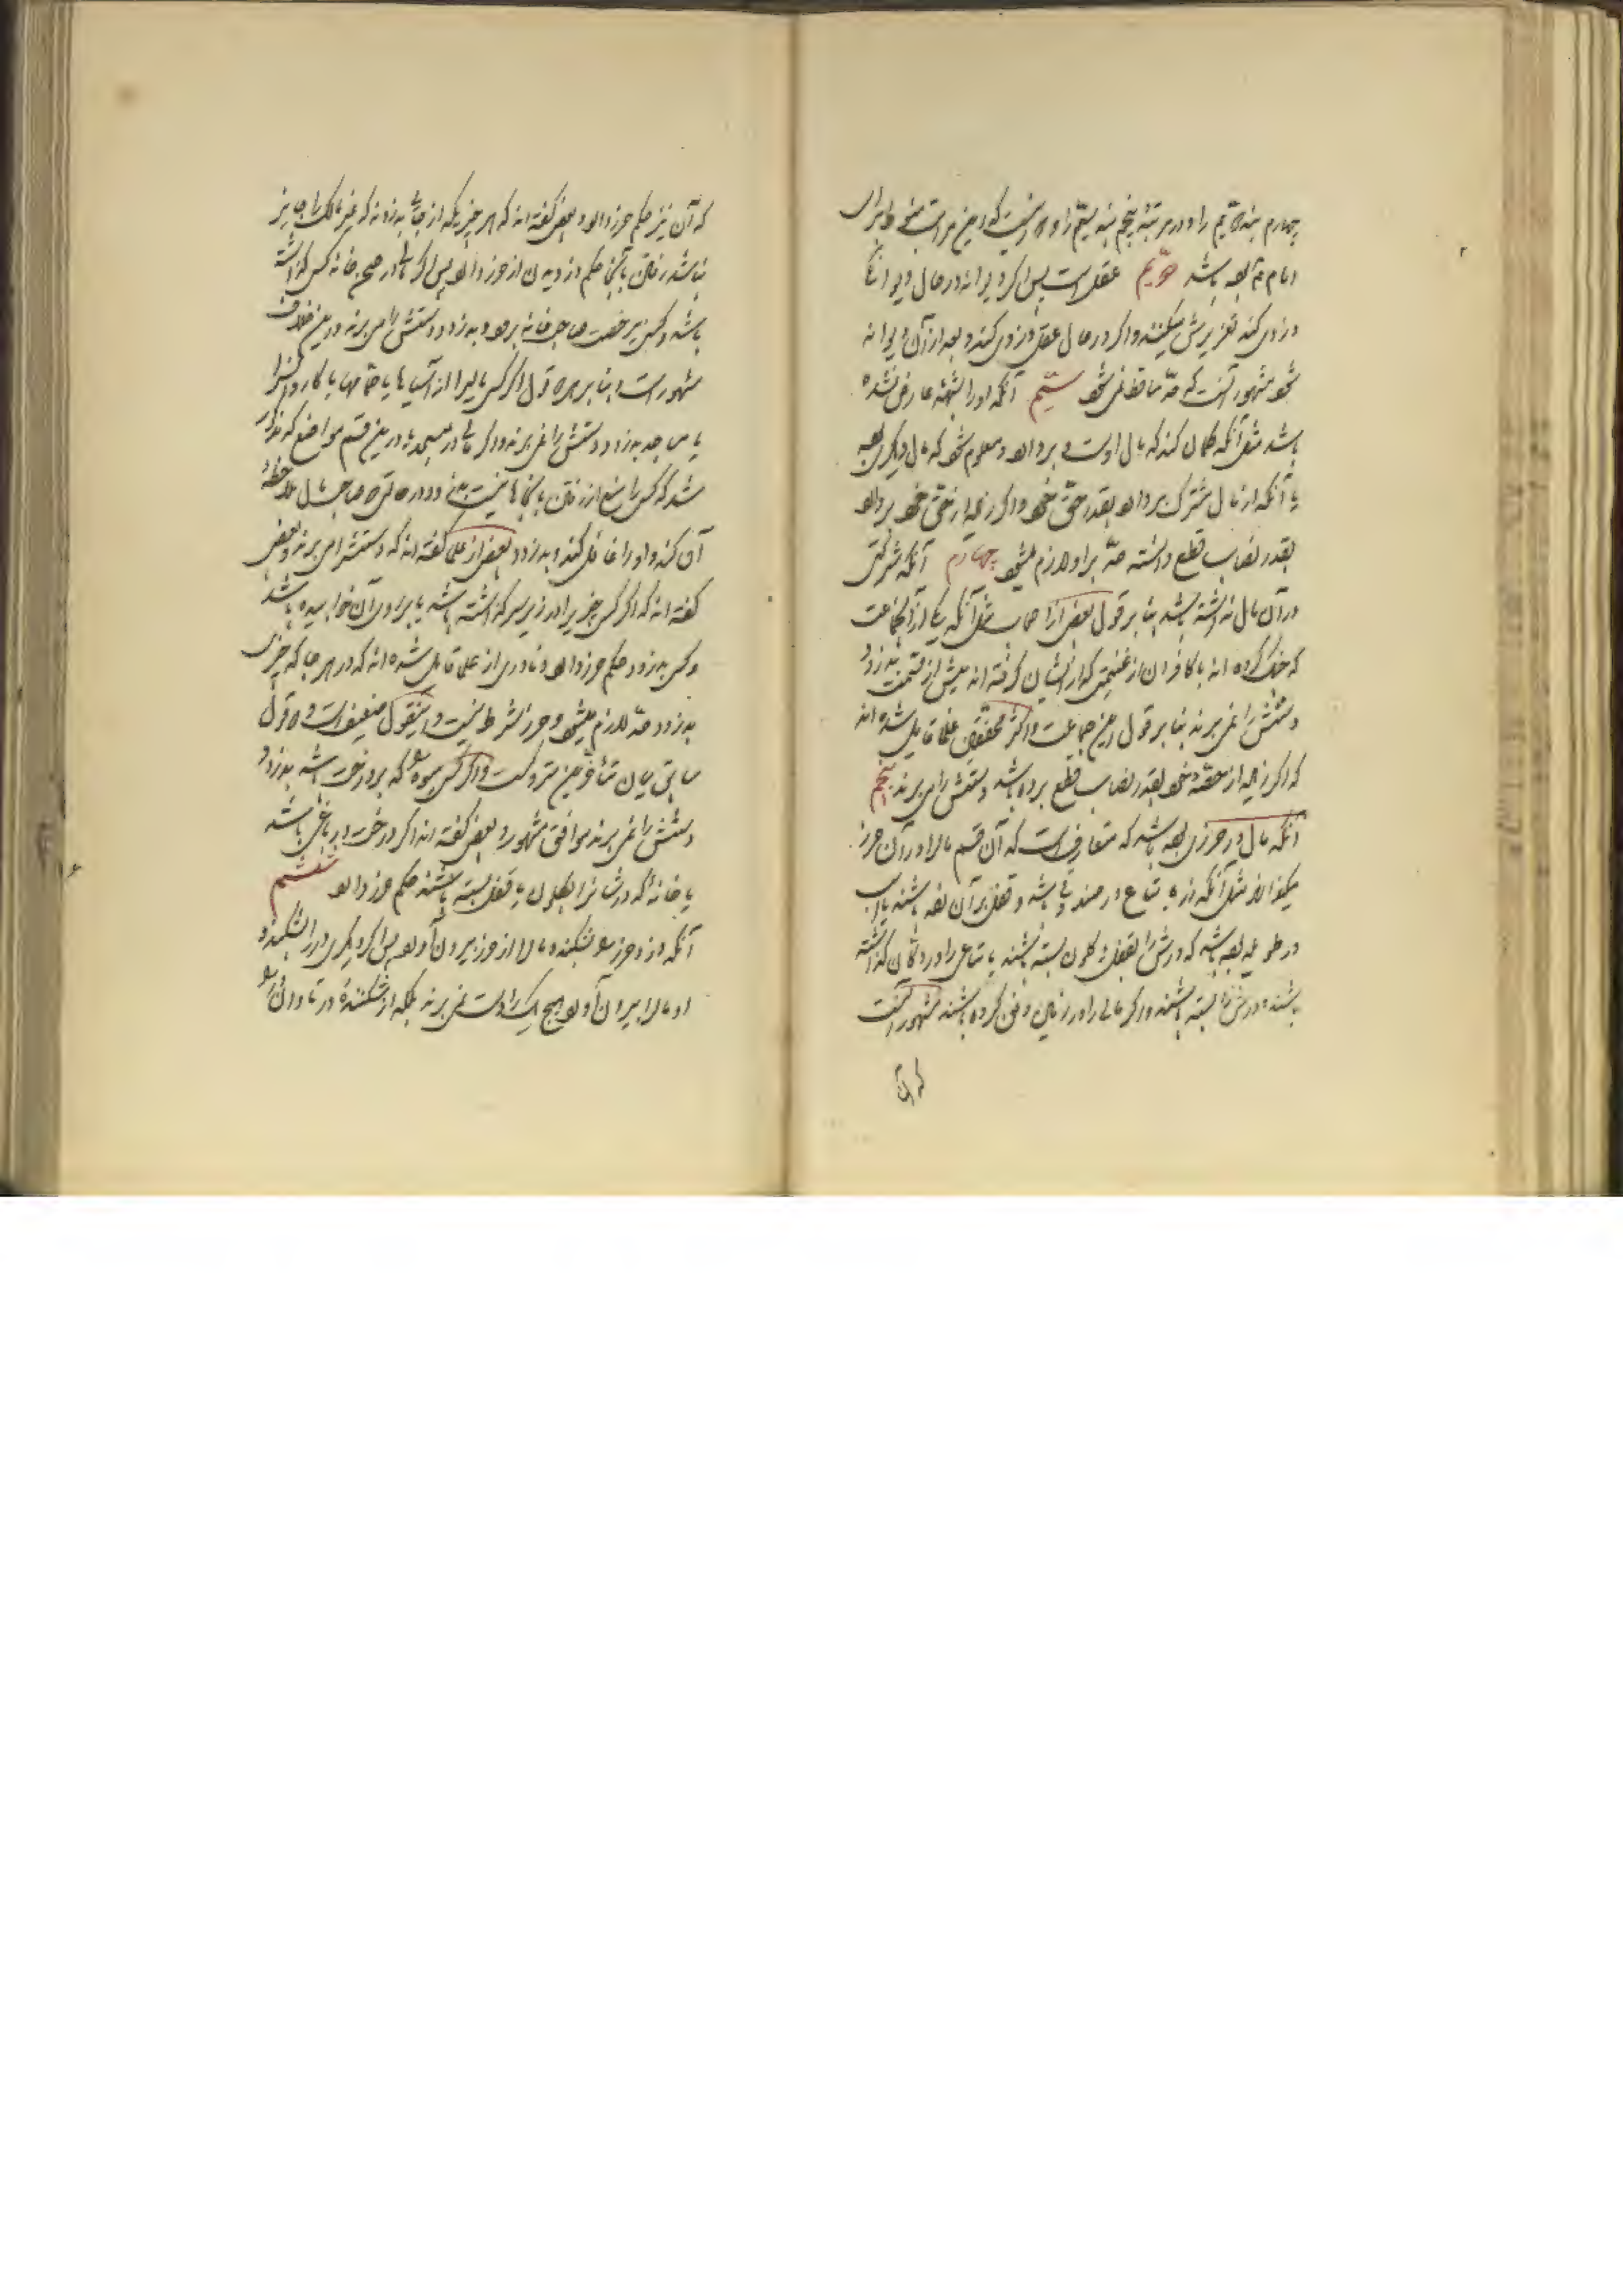 چهارم بند دویم را و در مرتبه پنجم بند سیم را و در این مراتب
و امام بوده باشد دویم عقل است پس اگر دیوانه در حال دیوانگی
دزدی کند تعزیرش میکنند و اگر در حال عقل دزدی کند و بعد از آن دیوانه
شود مشهور آنست که حد ساقط نمی شود سیم آنکه او را شبهه عارض نشده
باشد مثل آنکه گمان کند که مال اوست و بردارد و معلوم شود که مال دیگری بوده
یا آنکه از مال مشترک بردارد بقدر حق خود و اگر زیاده از حق خود بردارد
بقدر نصاب قطع دانسته حد بر او لازم میشود چهارم آنکه شرکتی
در آن مال نداشته باشد بنا بر قول بعضی از اصحاب مثل آنکه یکی از آنجماعت
که جنگ کرده اند با کافران از غنیمتی که از ایشان گرفته اند پیش از قسمت بدزدد
دستش را نمی برند بنا بر قول این جماعت و اکثر محققین علما قایل شده اند
که اگر زیاده از حصه خود بقدر نصاب قطع برده باشد دستش را می برند پنجم
آنکه مال در حرزی بوده باشد که متعارف است که آن قسم مال را در آن حرز
میگذارند مثل آنکه زر یا متاع در صندوقی باشد و قفل بر آن زده باشند یا اسب
در طویله بوده باشد که درش را بقفل و کلون بسته باشند یا متاعی را در دکان گذاشته
باشند و درش را بسته باشند و اگر مالی را در زمین دفن کرده باشند مشهور آنست
که آن
که آن نیز حکم حرز دارد و بعضی گفته اند که هر چیزی که از جائی بدزدند که غیر مالک را جایز
نباشد رفتن بآنجا حکم دزدیدن از حرز دارد پس اگر مالی در صحن خانه کسی گذاشته
باشد و کسی بیرخصت صاحب خانه برود و بدزدد دستش را می برند و این خلاف
مشهور است و بنا بر هر دو قول اگر کسی مالیرا از آسیاها یا حمامها یا کاروانسرا
یا مساجد بدزدد دستش را نمی برند و اگر مالی در مسجد یا در این قسم مواضع که مذکور
شد که کسی را منع از رفتن بآنجاها نیست بدزدد در حالتی که صاحبش ملاحظه
آن کند و او را غافل کند و بدزدد بعضی از علما گفته اند که دستش را می برند و بعضی
گفته اند که اگر کسی چیزیرا در زیر سر گذاشته باشد یا بر روی آن خوابیده باشد
و کسی بدزدد حکم حرز دارد و نادری از علما قایل شده اند که در هر جا که چیزی
بدزدد حد لازم میشود و حرز شرط نیست و اینقول ضعیفست و دو قول
سابق میان متاخرین متروکست و اگر کسی میوه را که بر درخت باشد بدزدد
دستش را نمی برند موافق مشهور و بعضی گفته اند اگر درخت در باغی باشد
یا خانه که درشانرا بکلون یا قفل بسته باشند حکم حرز دارد ششم
آنکه دزد حرز را بشکند و مال را از حرز بیرون آورد پس اگر دیگری در را بشکند و
او مال را بیرون آورد هیچ یک را دست نمی برند بلکه از شکننده در تاوان را